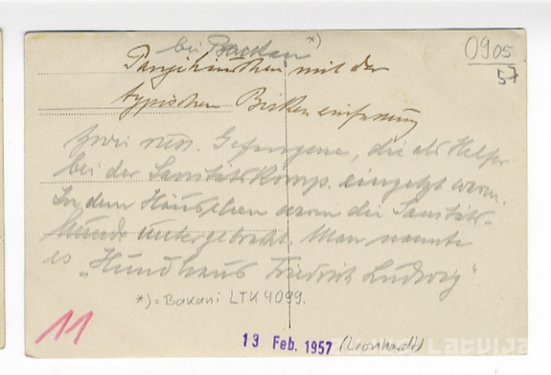 bei Backan *)
0905
57
Panjehäuschen mit der
typischen Birkeneinfassung
Zwei russ. Gefangene, die als Helfer
bei der Sanitätskomp. eingesetzt waren.
In dem Häuschen waren die Sanitäts-
hunde untergebracht. Man nannte
es "Hundhaus Friedrich Ludwig"
*) = Bakani LTK 4099.
11
13 Feb. 1957 (Leonhardt)